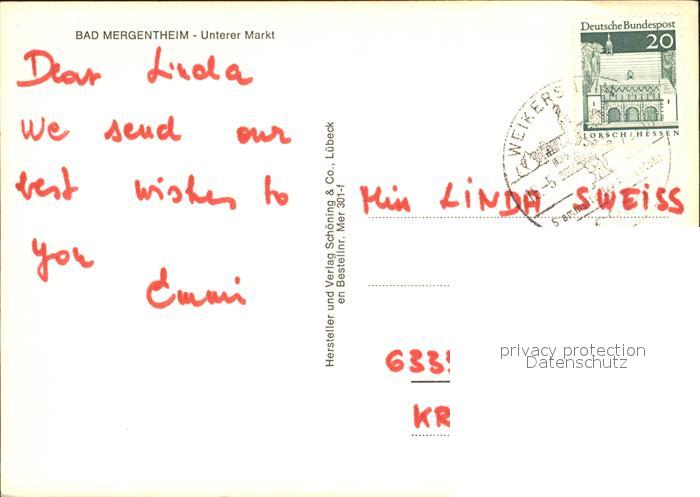 BAD MERGENTHEIM - Unterer Markt
Dear Linda
We send our
best wishes to
you
Emmi
Hersteller und Verlag Schöning & Co., Lübeck
en Bestellnr. Mer 301-f
Deutsche Bundespost
20
LORSCH/HESSEN
WEIKERS
Miss LINDA SWEISS
6333
KR
privacy protection
Datenschutz